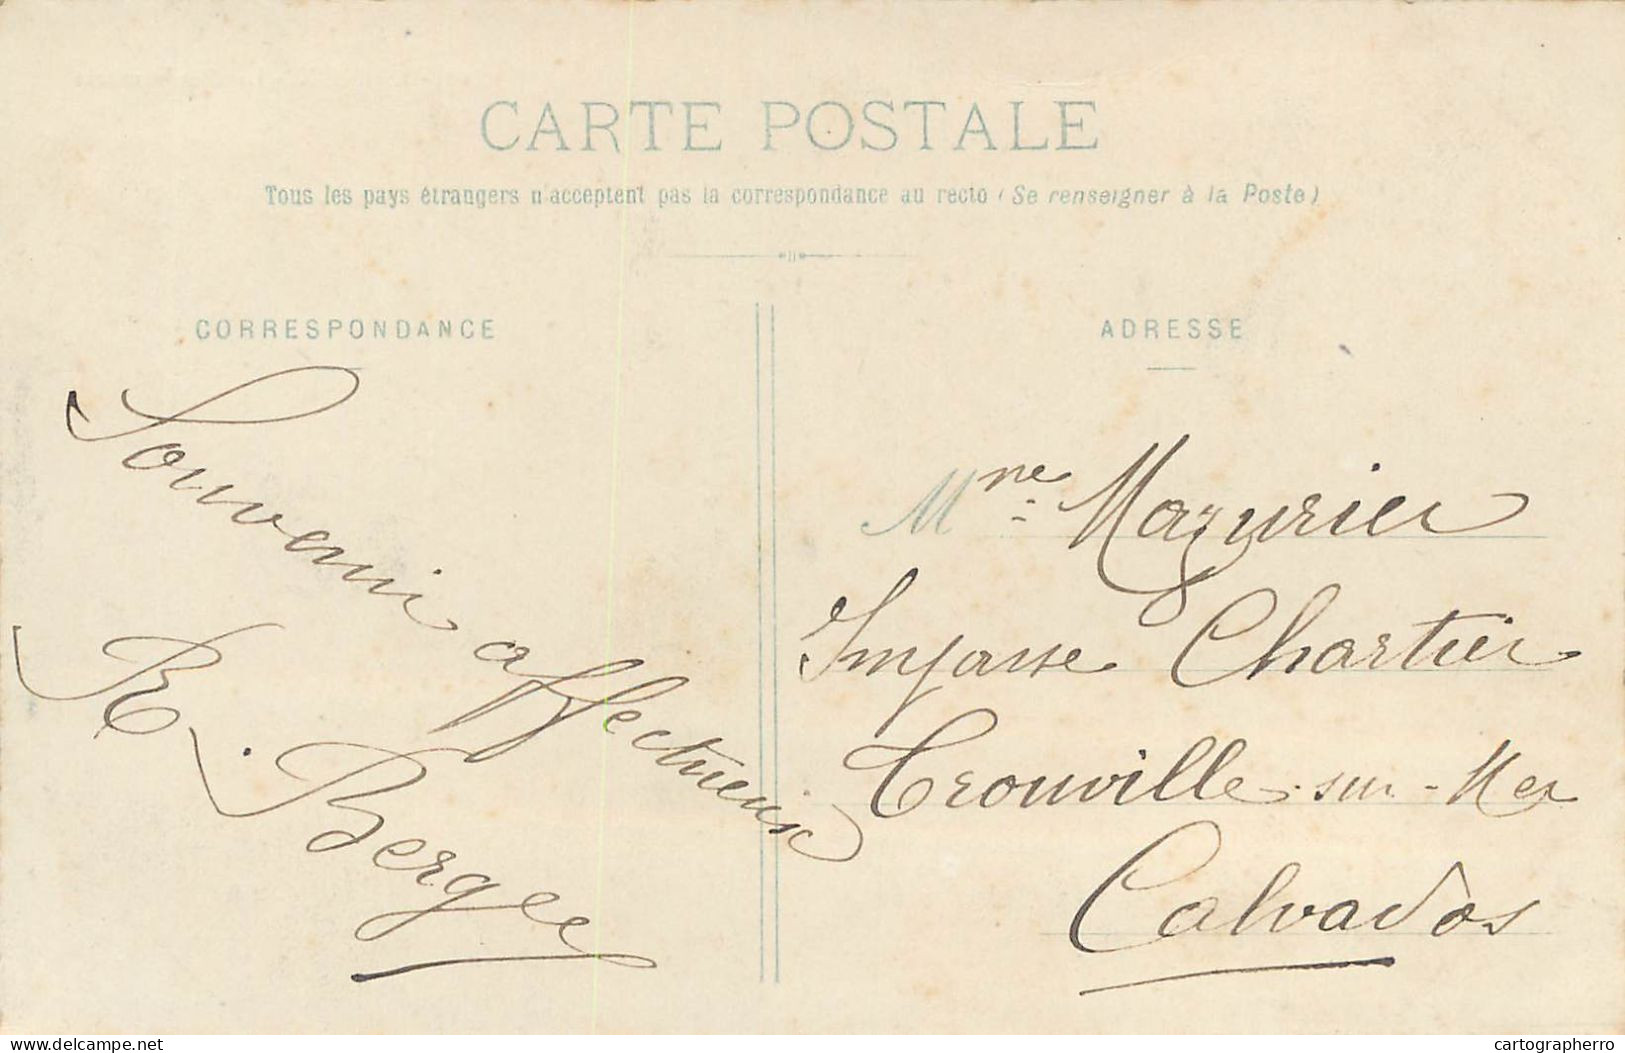 CARTE POSTALE
Tous les pays étrangers n'acceptent pas la correspondance au recto (Se renseigner à la Poste)
CORRESPONDANCE
Souvenir affectueux
R. Berger
ADRESSE
Mme Mazurier
Impasse Chartier
Trouville-sur-Mer
Calvados
delcampe.net
cartographerro